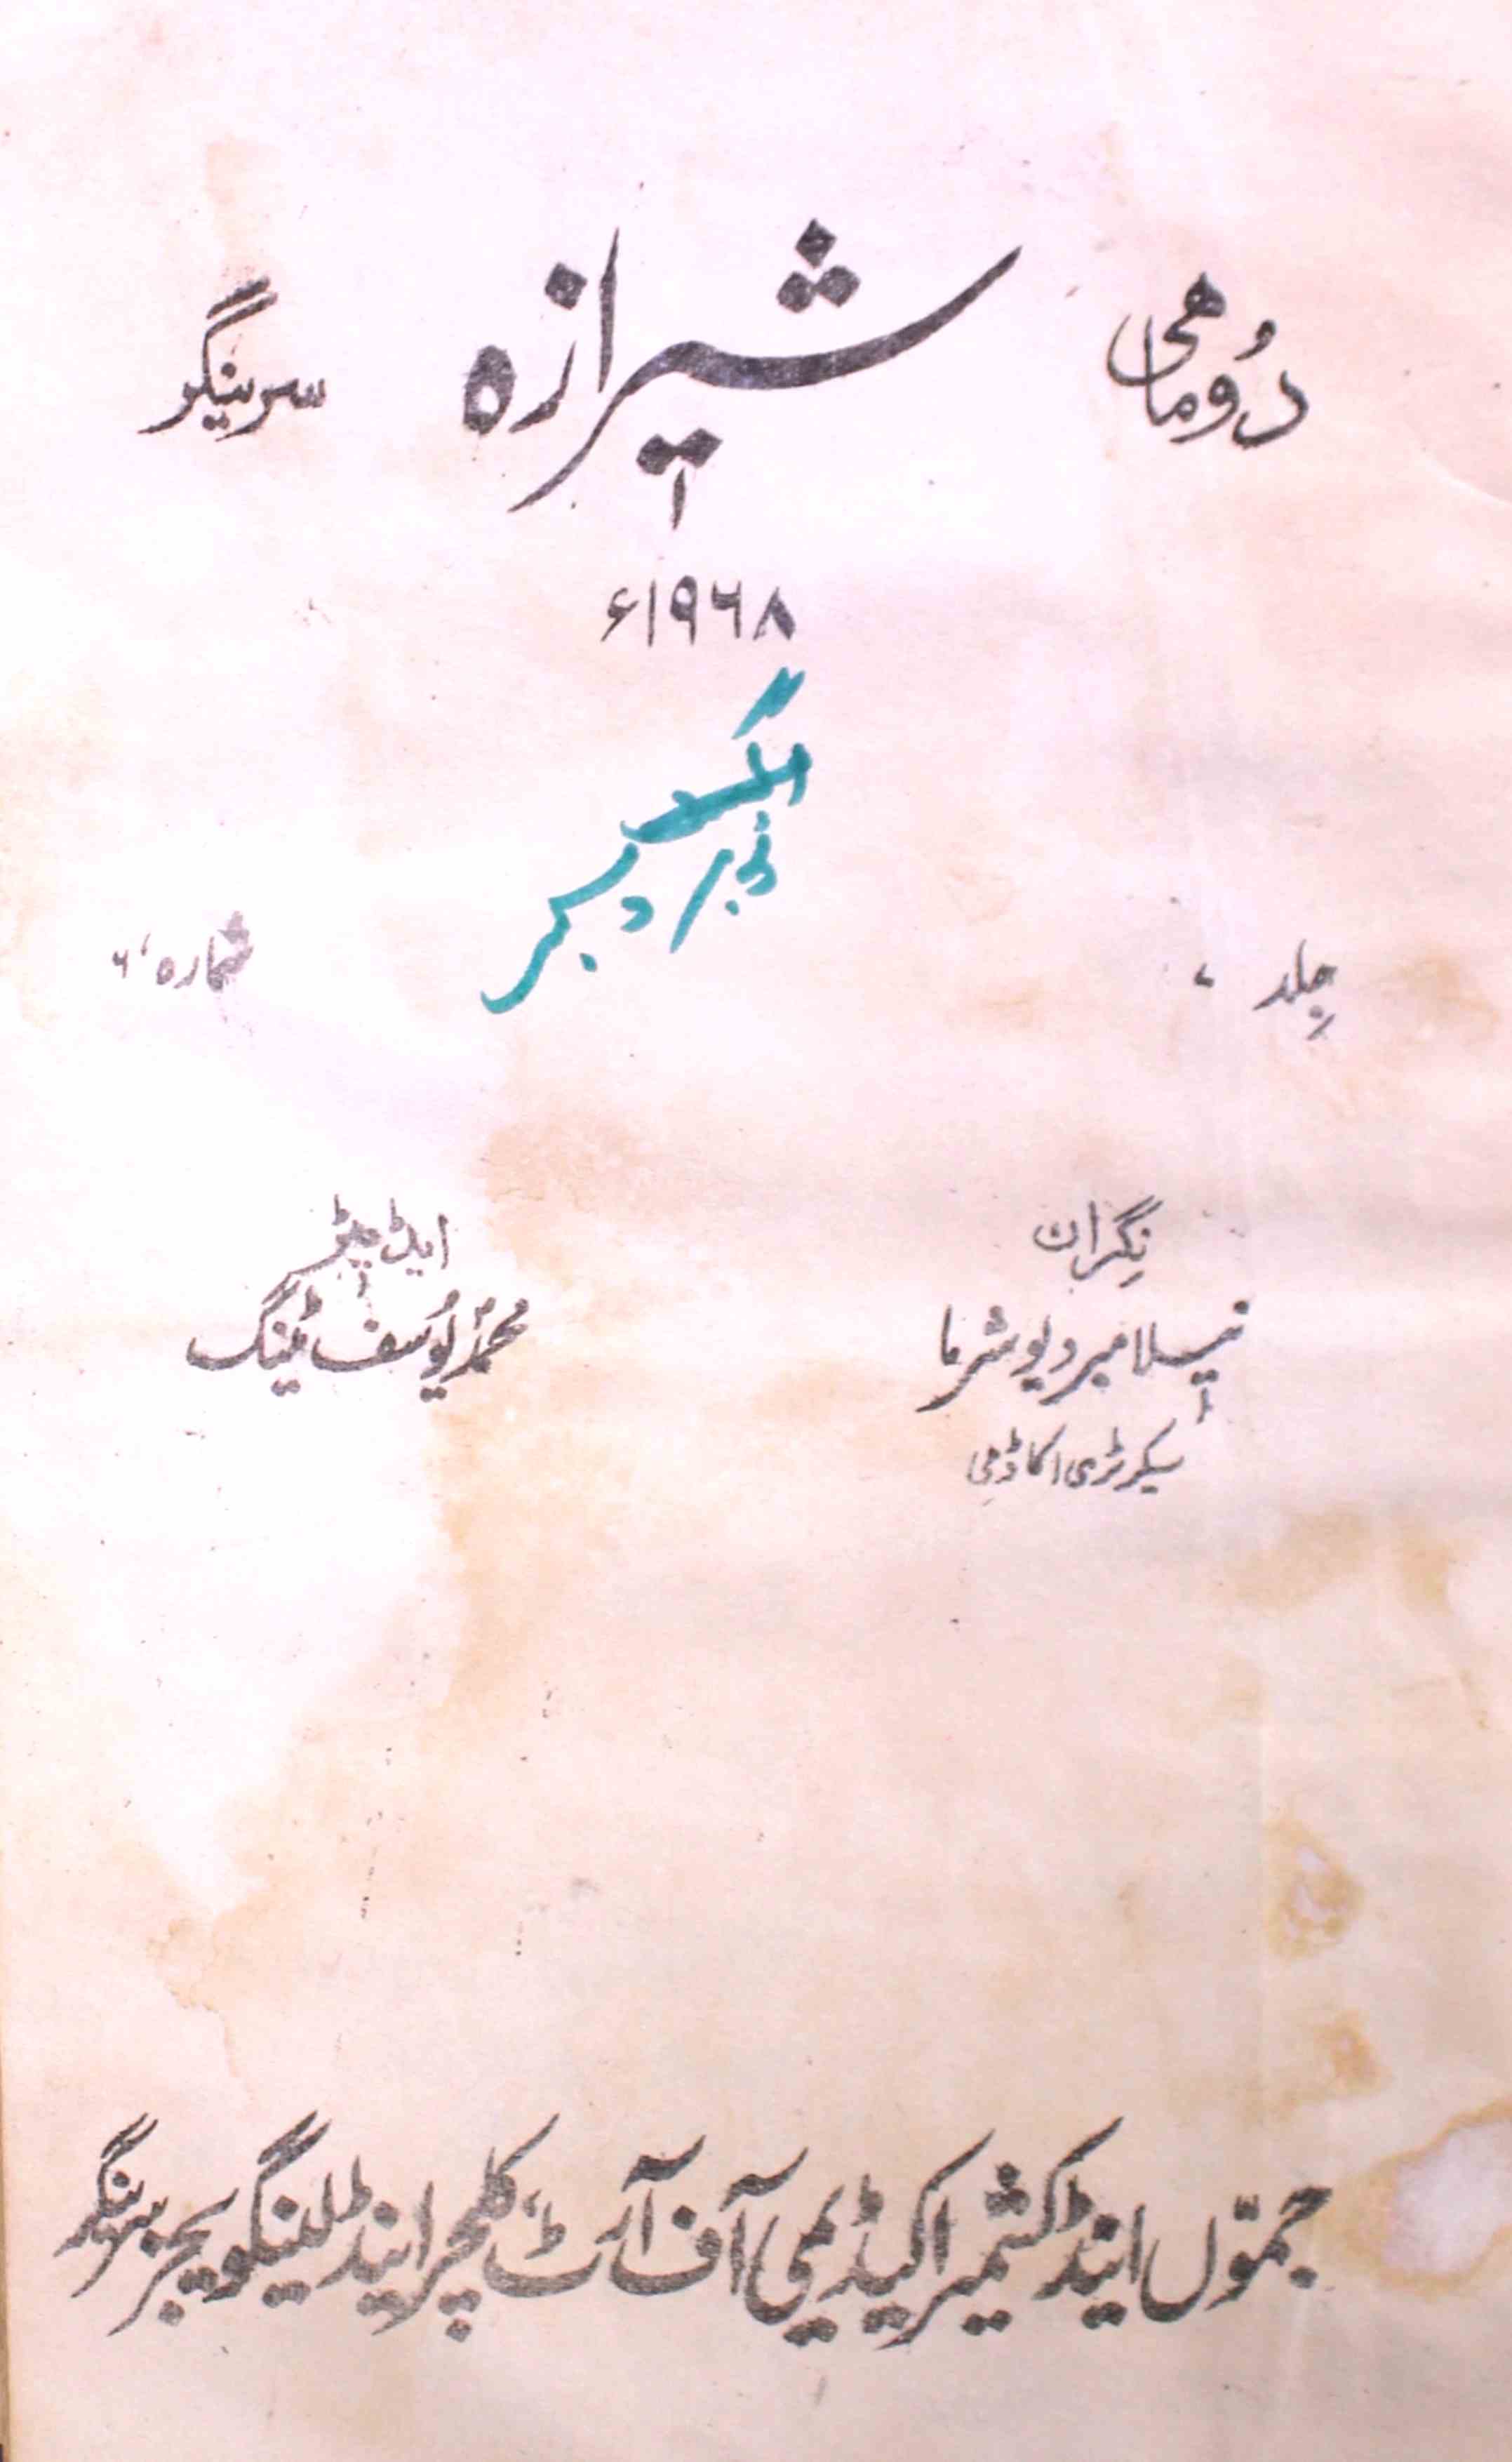 دُوماهی شیرازہ سرینگر
۱۹۶۸ء
نومبر دسمبر
جِلد ۷ شماره ۶
نِگران
نیلامبر دیو شرما
سیکرٹری اکاڈمی
ایڈیٹر
محمّد یُوسف ٹینگ
جمّوں اینڈ کشمیر اکیڈیمی آف آرٹ کلچر اینڈ لینگویجز سرینگر